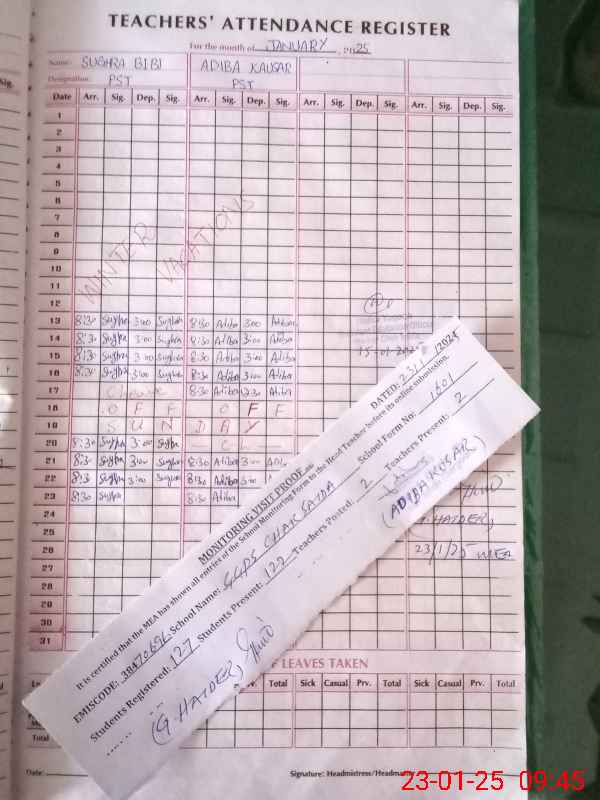 TEACHERS' ATTENDANCE REGISTER
For the month of JANUARY, 2025
Name: SUGHRA BIBI ADIBA KAUSAR
Designation: PST PST
Date Arr. Sig. Dep. Sig. Arr. Sig. Dep. Sig. Arr. Sig. Dep. Sig. Arr. Sig. Dep. Sig.
1
2
3
4
5
6
7
8
9
10
11
12
WINTER VACATIONS
13 8:30 Sughra 3:00 Sughra 8:30 Adiba 3:00 Adiba
14 8:30 Sughra 3:00 Sughra 8:30 Adiba 3:00 Adiba
15 8:30 Sughra 3:00 Sughra 8:30 Adiba 3:00 Adiba
15-01-2025
16 8:30 Sughra 3:00 Sughra 8:30 Adiba 3:00 Adiba
17 8:30 Adiba 12:30 Adiba
18 O F F O F F
19 S U N D A Y
20 8:30 Sughra 3:00 Sughra
21 8:30 Sughra 3:00 Sughra 8:30 Adiba 3:00
22 8:30 Sughra 3:00 Sughra 8:30 Adiba 3:00
23 8:30 Sughra 8:30 Adiba
24
25
26
27
28
29
30
31
(G. HAIDER)
23/1/25 MEA
MONITORING VISIT PROOF
DATED: 23/1/2025
It is certified that the MEA has shown all entries of the School Monitoring Form to the Head Teacher before its online submission.
EMISCODE: 38470696 School Name: GGPS CHAK SAIDA School Form No: 1601
Students Registered: 127 Students Present: 122 Teachers Posted: 2 Teachers Present: 2
(G. HAIDER) (ADIBA KAUSAR)
F LEAVES TAKEN
Total Sick Casual Prv. Total Sick Casual Prv. Total
Total
Date: Signature: Headmistress/Headmaster
23-01-25 09:45